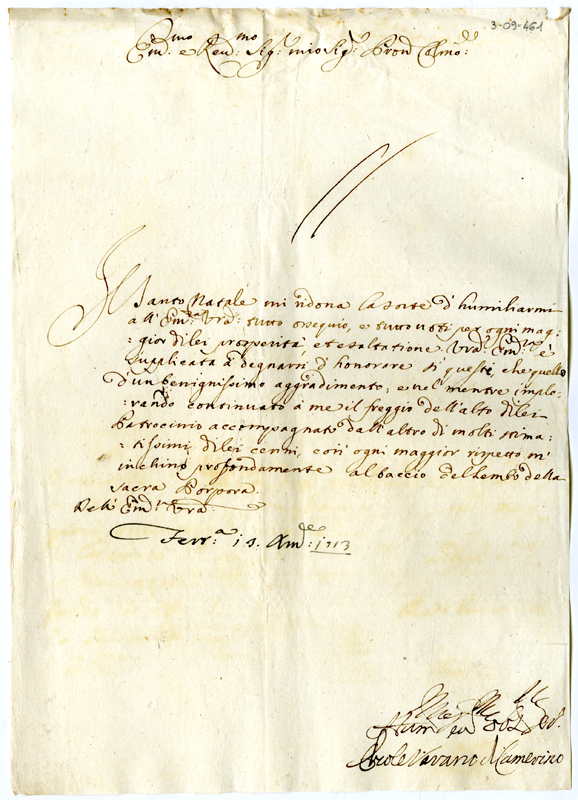 3-09-461
Em.mo e Reu.mo Sig.r mio Sig.r Pron Colmo:
Il Santo Natale mi ridona la sorte d'humiliarmi
all'Em.za Vra: tutto ossequio, e tutto uoti per ogni mag=
:gior di lei prosperità et esaltatione. Vra: Em.za è
supplicata à degnarsi d'honorare sì questi che quello
d'un benignissimo aggradimento; e nel mentre implo=
:rando continuato à me il freggio dell'alto di lei
Patrocinio accompagnato dall'altro di molti stima=
:tissimi di lei cenni, con ogni maggior rispetto m'
inchino profondamente al baccio del lembo della
sacra Porpora.
Dell' Em.za Vra:
Ferr.a 13. 1713
Hum
Ercole Varano di Camerino